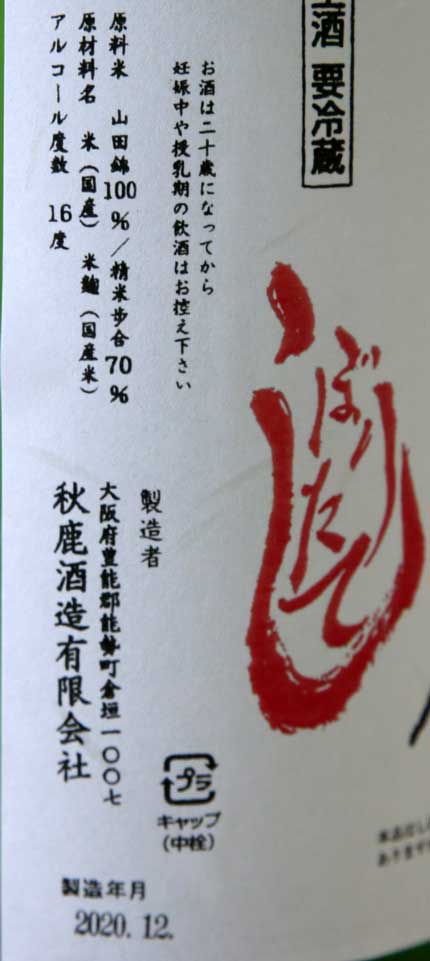 酒 要冷蔵
しぼりたて
お酒は二十歳になってから
妊娠中や授乳期の飲酒はお控え下さい
原料米 山田錦100%/精米歩合70%
原材料名 米(国産)米麹(国産米)
アルコール度数 16度
製造者
大阪府豊能郡能勢町倉垣一〇〇七
秋鹿酒造有限会社
プラ
キャップ
(中栓)
製造年月
2020.12.